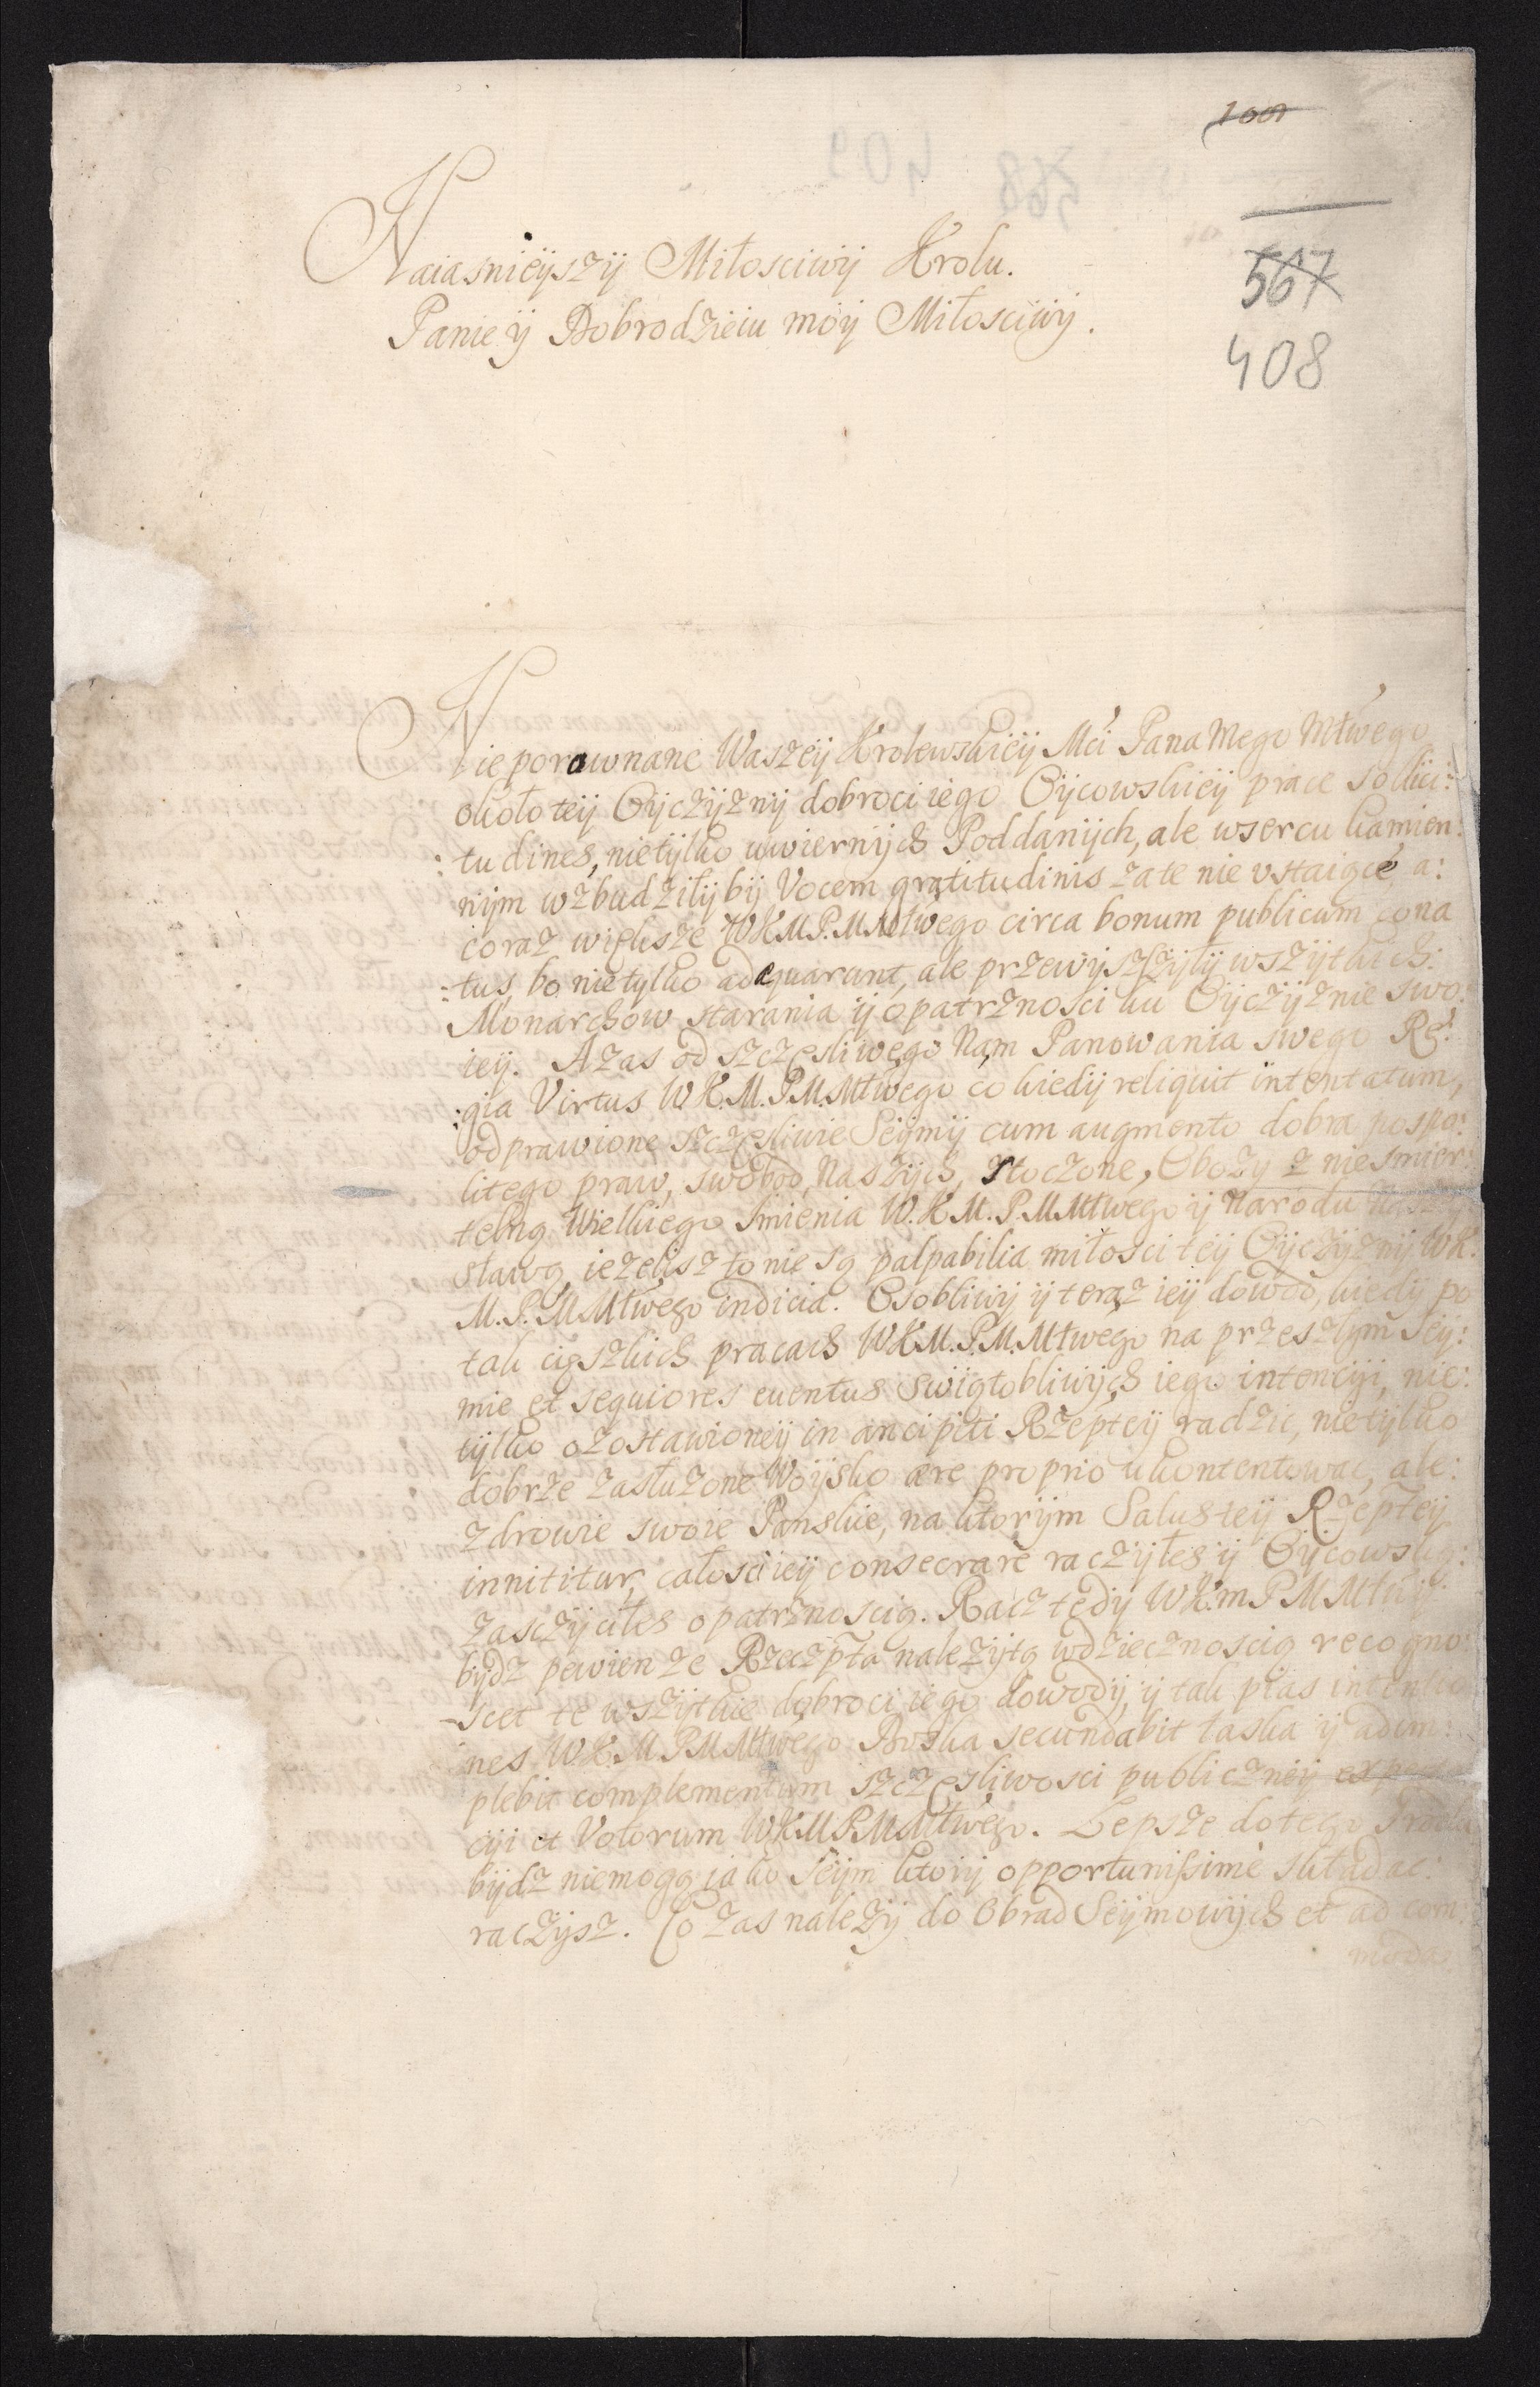 567
408
Naiasnieÿszÿ Miłosciwÿ Krolu.
Panie ÿ Dobrodzieiu moÿ Miłosciwÿ.
Nie porownane Waszeÿ Krolewskieÿ Mći Pana Mego Młwego
około teÿ Oÿczÿznÿ dobroci iego Oÿcowskieÿ prace sollici:
:tudines, nietÿlko uwiernÿch Poddanÿch, ale wsercu kamien:
nÿm wzbudziłÿbÿ Vocem gratitudinis zate nie ustaiące, a:
coraz większe WKM.P.M.Młwego circa bonum publicum cona
:tus, bo nietylko adæquarunt, ale przewÿszszÿłÿ wszÿtkich:
Monarchow starania ÿ opatrznosci ku Oÿczÿznie swo:
ieÿ. Azas od szczęsliwego Nam Panowania swego Re:
:gia Virtus W.K.M.P.M.Młwego co kiedÿ reliquit intentatum,
odprawione szczęsliwie Seÿmÿ cum augmento dobra pospo:
litego praw, swobod, Naszÿch, stoczone, Obozÿ z niesmier:
telną Wielkiego Imienia W.K.M.P.M.Młwego ÿ Narodu
sławą, iezelisz to nie są palpabilia miłosci teÿ Oÿczÿznÿ WK.
M.P.M.Młwego indicia. Osobliwÿ ÿ teraz ieÿ dowod, kiedÿ po
tak cięszkich pracach WKM.P.M.Młwego na przeszłÿm Seÿ:
mie et sequiores eventus swiątobliwÿch iego intenciÿi, nie:
tÿlko ozostawioneÿ in ancipiti Rzepteÿ radzic, nietÿlko
dobrze zasłuzone Woÿsko ære proprio ukontentowac, ale:
zdrowie swoie Panskie, na ktorÿm Salus teÿ Rzepteÿ
innititur, całosci ieÿ consecrare raczÿłes ÿ Oÿcowską:
zasczÿciłes opatrznoscią. Racz tedÿ WK.M P M Młwÿ
bÿdz pewien ze Rzeczpta nalezÿtą wdziecznoscią recogno:
scet te wszÿtkie dobroci iego dowodÿ, ÿ tak pias intentio
nes W.K.M.P.M.Młwego Boska secundabit łaska ÿ adim:
plebit complementum szczęsliwosci publiczneÿ
et Votorum WKM.P.M.Młwego. Lepsze do tego
bÿdz niemogą iako Seÿm ktorÿ opportunissime składac:
raczÿsz. Co zas nalezÿ do Obrad Seÿmowÿch et ad com
moda